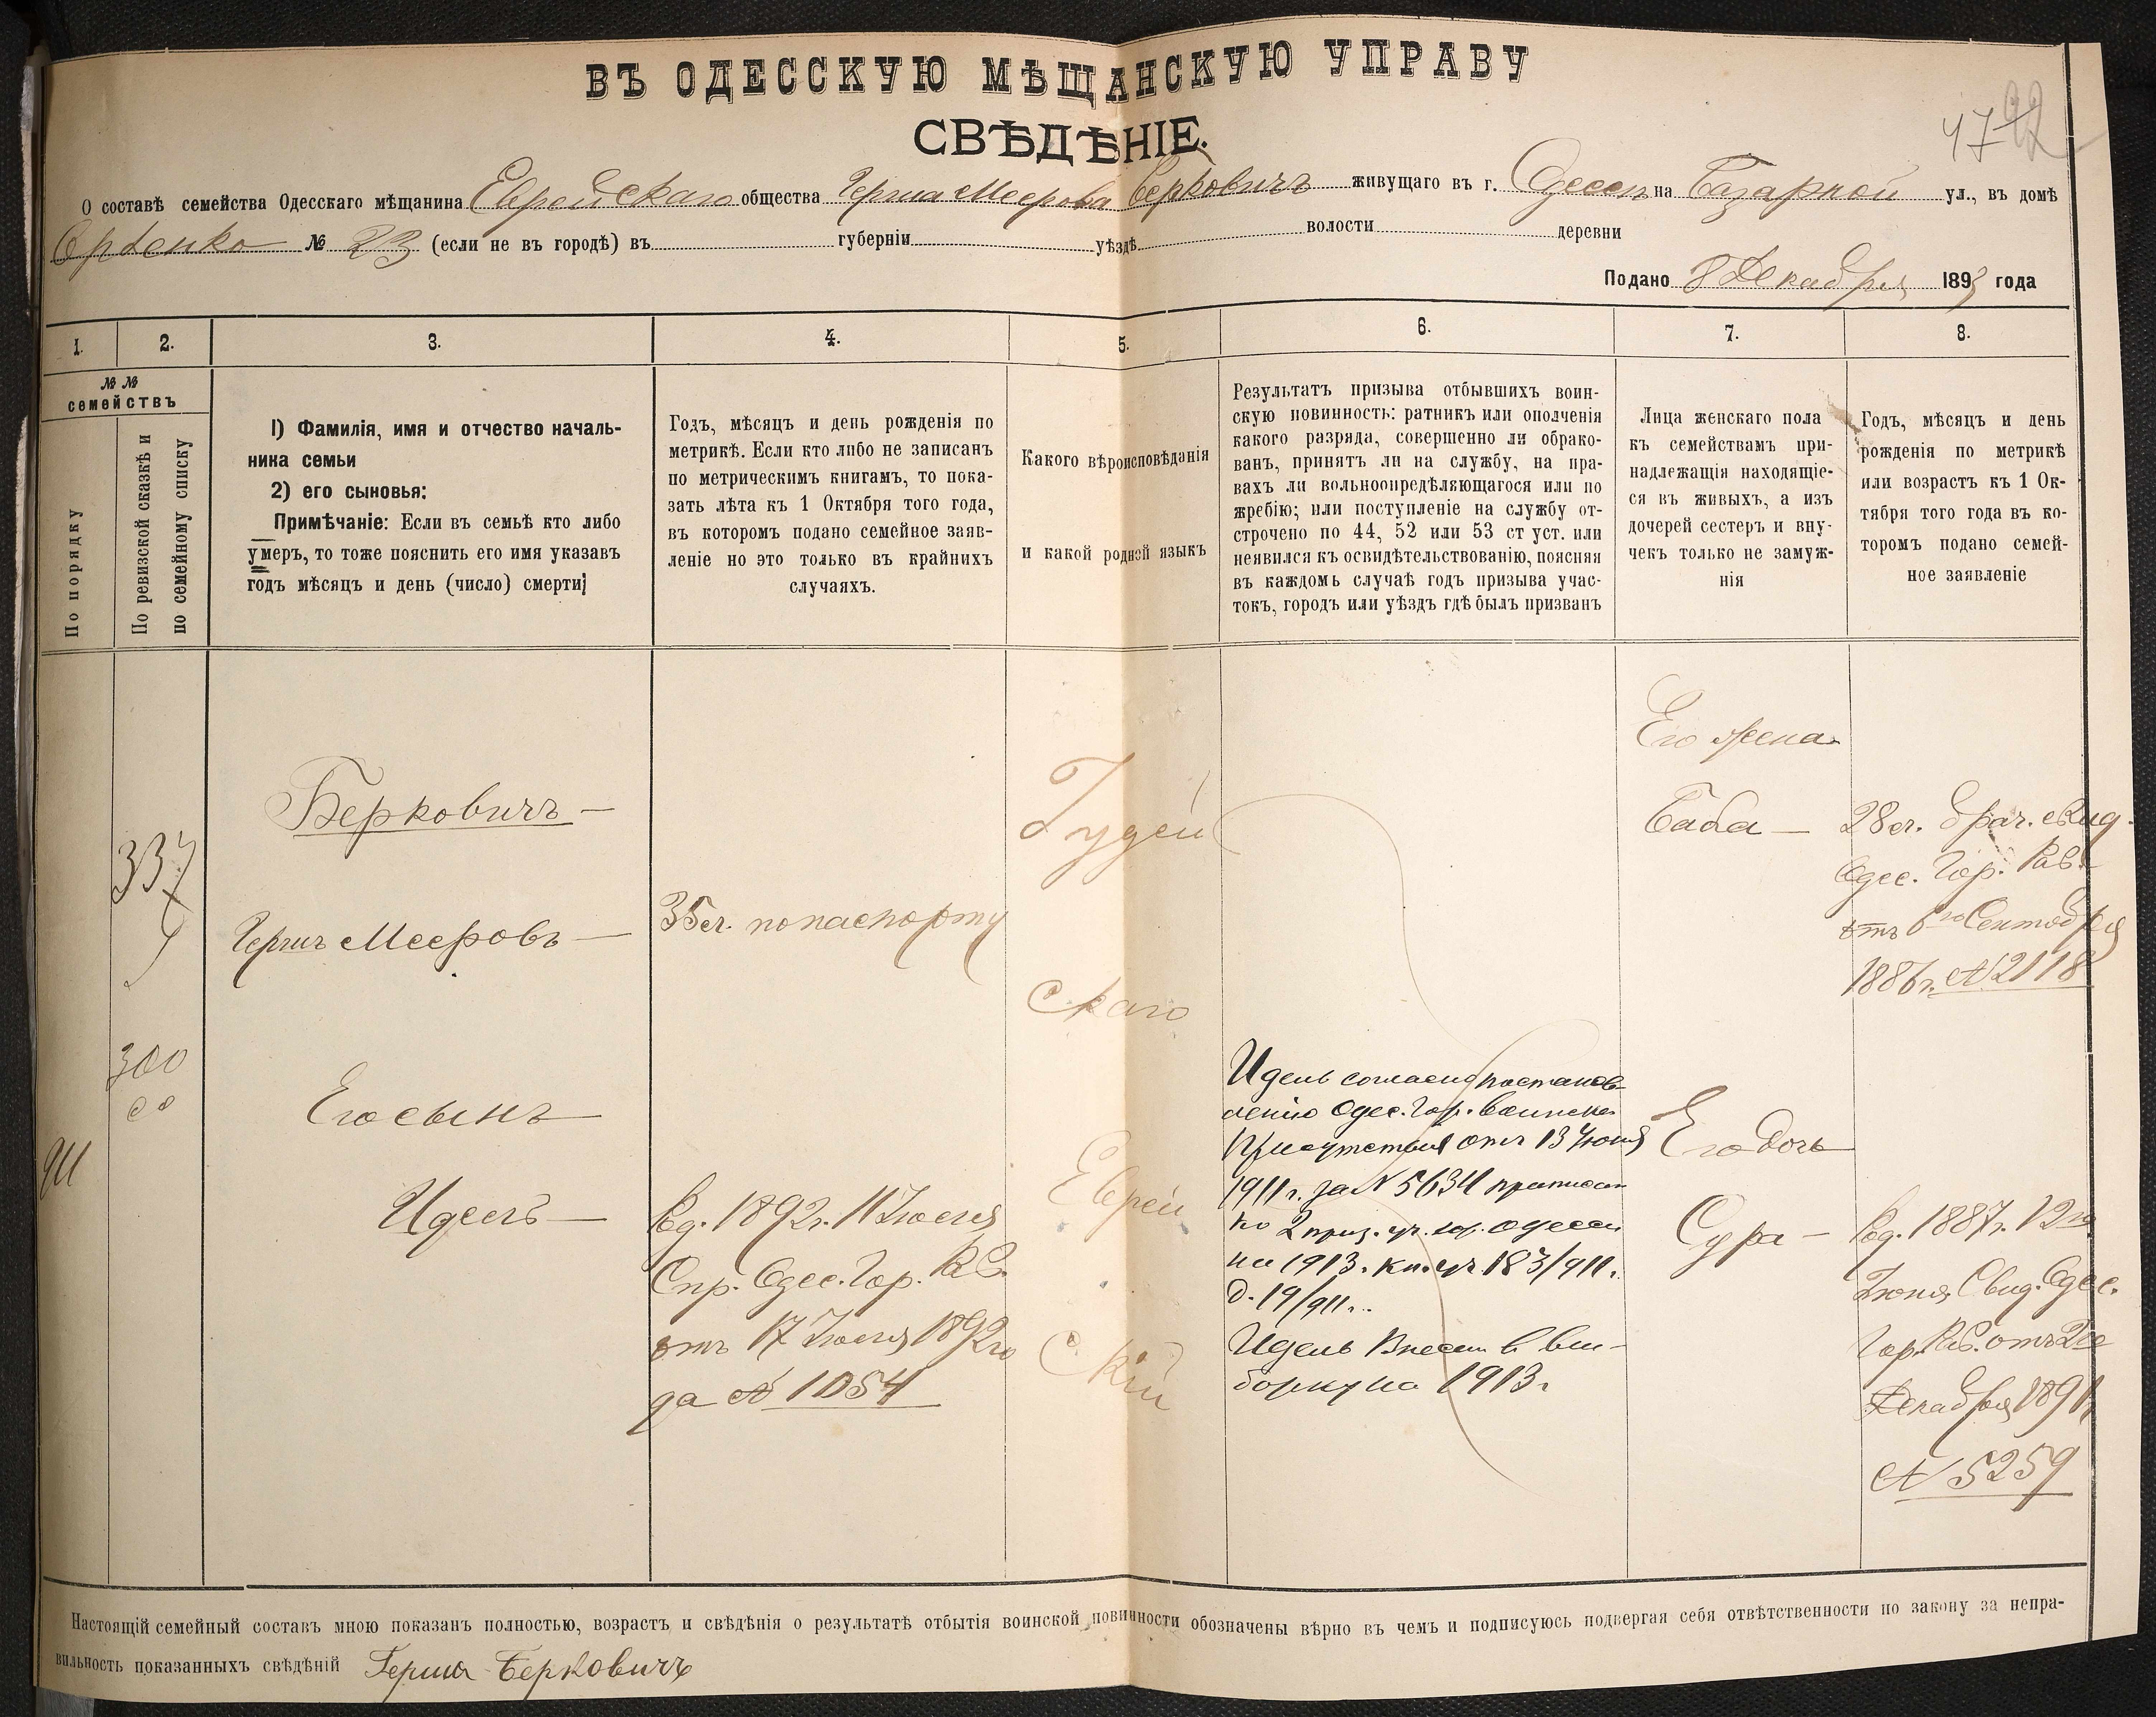 ВЪ ОДЕССКУЮ МѢЩАНСКУЮ УПРАВУ
СВѢДѢНІЕ.
47
92
О составѣ семейства Одесскаго мѣщанина Еврейскаго общества Герша Меерова Берковичъ живущаго въ г. Одессѣ на Базарной ул., въ домѣ
№ 23 (если не въ городѣ) въ губерніи уѣздѣ волости деревни
Подано 8 Декабря 1893 года
1. 2. 3. 4. 5. 6. 7. 8.
№ №
семействъ
По порядку
По ревизской сказкѣ и
по семейному списку
1) Фамилія, имя и отчество началь-
ника семьи
2) его сыновья:
Примѣчаніе: Если въ семьѣ кто либо
умеръ, то тоже пояснить его имя указавъ
годъ мѣсяцъ и день (число) смерти;
Годъ, мѣсяцъ и день рожденія по
метрикѣ. Если кто либо не записанъ
по метрическимъ книгамъ, то пока-
зать лѣта къ 1 Октября того года,
въ которомъ подано семейное заяв-
леніе но это только въ крайнихъ
случаяхъ.
Какого вѣроисповѣданія
и какой родной языкъ
Результатъ призыва отбывшихъ воин-
скую повинность: ратникъ или ополченія
какого разряда, совершенно ли обрако-
ванъ, принятъ ли на службу, на пра-
вахъ ли вольноопредѣляющагося или по
жребію; или поступленіе на службу от-
строчено по 44, 52 или 53 ст уст. или
неявился къ освидѣтельствованію, поясняя
въ каждомъ случаѣ годъ призыва учас-
токъ, городъ или уѣздъ гдѣ былъ призванъ
Лица женскаго пола
къ семействамъ при-
надлежащія находящіе-
ся въ живыхъ, а изъ
дочерей сестеръ и вну-
чекъ только не замуж-
нія
Годъ, мѣсяцъ и день
рожденія по метрикѣ
или возрастъ къ 1 Ок-
тября того года въ ко-
торомъ подано семей-
ное заявленіе
337
300
Берковичъ —
Гершъ Мееровъ —
Его сынъ
Идель —
35 л. по паспорту
Род. 1892 г. 11 Іюля
Спр. Одес. Гор. Рав.
отъ 17 Іюля 1892 го
да № 1054
Іудей
скаго
Еврей
скій
Идель согласно постанов-
ленію Одес. Гор. Воинск.
Присутствія отъ 13 Іюня
1911 г. за № 5634 приписан
ко 2 приз. уч. гор. Одессы
на 1913 г. 183/911 г.
д. 19/911 г.
Идель Внесен в вы-
борку на 1913 г
Его жена
Баба —
Его дочь
Сура —
28 л. брач. свид.
Одес. Гор. Рав.
отъ 6го Сентября
1886 г. № 2118
Род. 1887 г. 12 го
Іюня Свид. Одес.
Гор. Рав. отъ 2го
Декабря 1891 г.
№ 5259
Настоящій семейный составъ мною показанъ полностью, возрастъ и свѣдѣнія о результатѣ отбытія воинской повинности обозначены вѣрно въ чемъ и подписуюсь подвергая себя отвѣтственности по закону за непра-
вильность показанныхъ свѣдѣній Герша Берковичъ